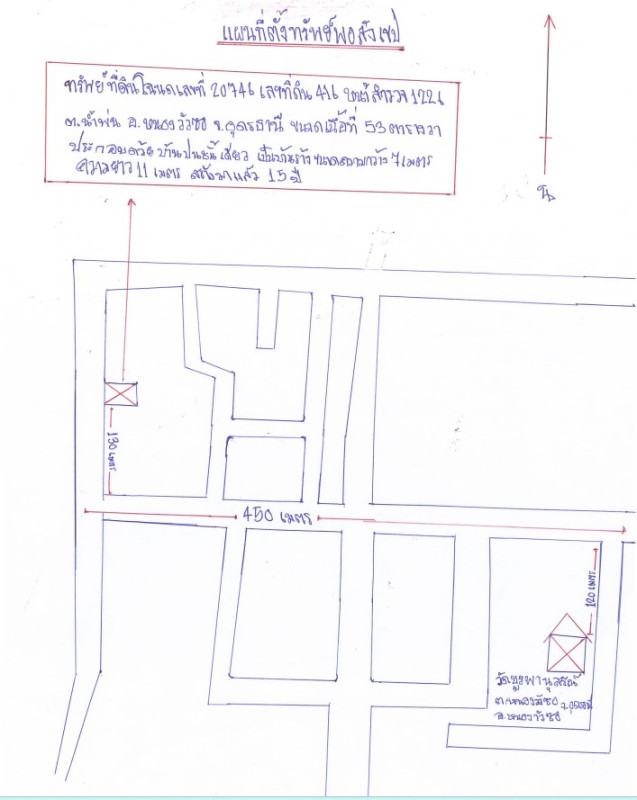 แผนที่ตั้งทรัพย์พอสังเขป
ทรัพย์ ที่ดินโฉนดเลขที่ 20746 เลขที่ดิน 416 หน้าสำรวจ 1226
ต.น้ำพ่น อ.หนองวัวซอ จ.อุดรธานี ขนาดเนื้อที่ 53 ตารางวา
ประกอบด้วย บ้านปูนชั้นเดียว เป็นบ้านร้าง ขนาดความกว้าง 7 เมตร
ความยาว 11 เมตร สร้างมาแล้ว 15 ปี
น
130 เมตร
450 เมตร
120 เมตร
ต.หนองวัวซอ จ.อุดรธานี
อ.หนองวัวซอ